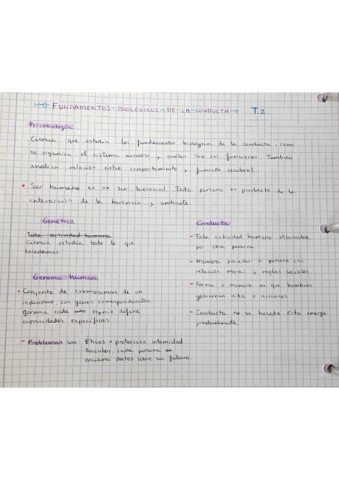 FUNDAMENTOS BIOLÓGICOS DE LA CONDUCTA T.2
Psicobiología
Ciencia que estudia los fundamentos biológicos de la conducta. Como
se organiza el sistema nervioso y cuáles son sus funciones. También
analiza relación entre comportamiento y función cerebral.
• Ser humano es un ser biosocial. Toda persona es producto de la
interacción de la herencia y ambiente
Genética
Toda actividad humana
Ciencia estudia todo lo que
heredamos
Genoma humano
• Conjunto de cromosomas de un
individuo, con genes correspondientes
genoma cada especie define
capacidades específicas
- Problemas son: Éticos → protección intimidad
Sociales: cada persona
datos sobre su futuro.
Conducta
- Toda actividad humana observable
por otra persona
- Manera proceder a persona con
relación moral o reglas sociales
- Forma o manera en que hombres
gobiernan vida o acciones
- Conducta no se hereda. Esta emerge
gradualmente